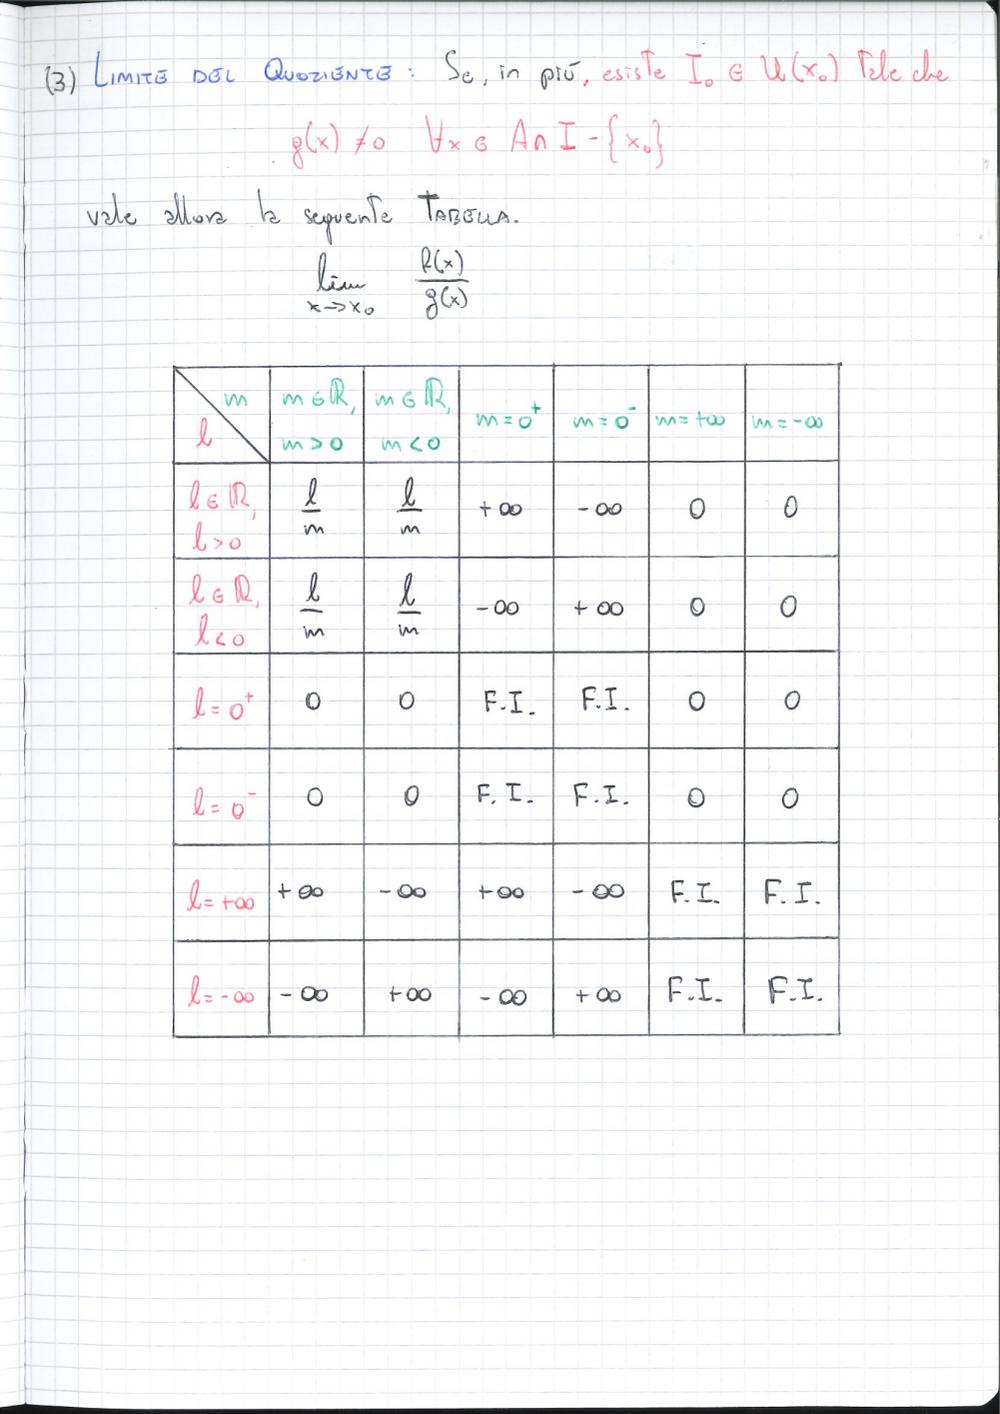 (3) LIMITE DEL QUOZIENTE: Se, in più, esiste I₀ ∈ U(x₀) Tale che
g(x) ≠ 0 ∀x ∈ A∩I-{x₀}
vale allora la seguente TABELLA.
lim f(x)/g(x)
x→x₀
m
l
m∈ℝ, m>0
m∈ℝ, m<0
m=0⁺
m=0⁻
m=+∞
m=-∞
l∈ℝ, l>0
l/m l/m +∞ -∞ 0 0
l∈ℝ, l<0
l/m l/m -∞ +∞ 0 0
l=0⁺ 0 0 F.I. F.I. 0 0
l=0⁻ 0 0 F.I. F.I. 0 0
l=+∞ +∞ -∞ +∞ -∞ F.I. F.I.
l=-∞ -∞ +∞ -∞ +∞ F.I. F.I.